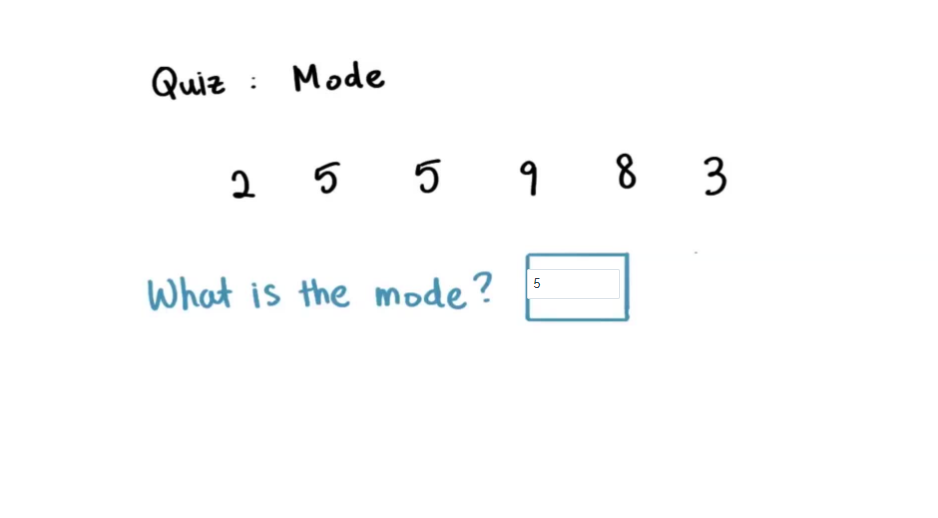 Quiz : Mode
2 5 5 9 8 3
What is the mode? 5